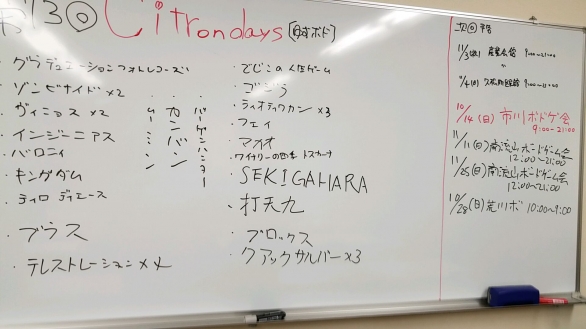 第130 Citrondays [日本ボド]
・グラデュエーションフォトレコーズ
・ゾンビサイド×2
・ヴィニョス×2
・インジーニアス
・バロニィ
・キングダム
・ティロ ディエース
・ブラス
・テレストレーション××
・ムーミン
・カンバン
・バーゲンハンター
・でじこの人生ゲーム
・ゴジラ
・ティオティワカン×3
・フェイ
・マオオ
・ワイナリーの四季 トスカーナ
・SEKIGAHARA
・打天九
・ブロックス
・クアックサルバー×3
次回予告
11/3(土) 産業会館 9:00~21:00
10/14(日) 市川ボドゲ会
9:00~21:00
11/11(日) 南流山ボードゲーム会
12:00~21:00
11/25(日) 南流山ボードゲーム会
12:00~21:00
10/28(日) 荒川ボ 10:00~9:00